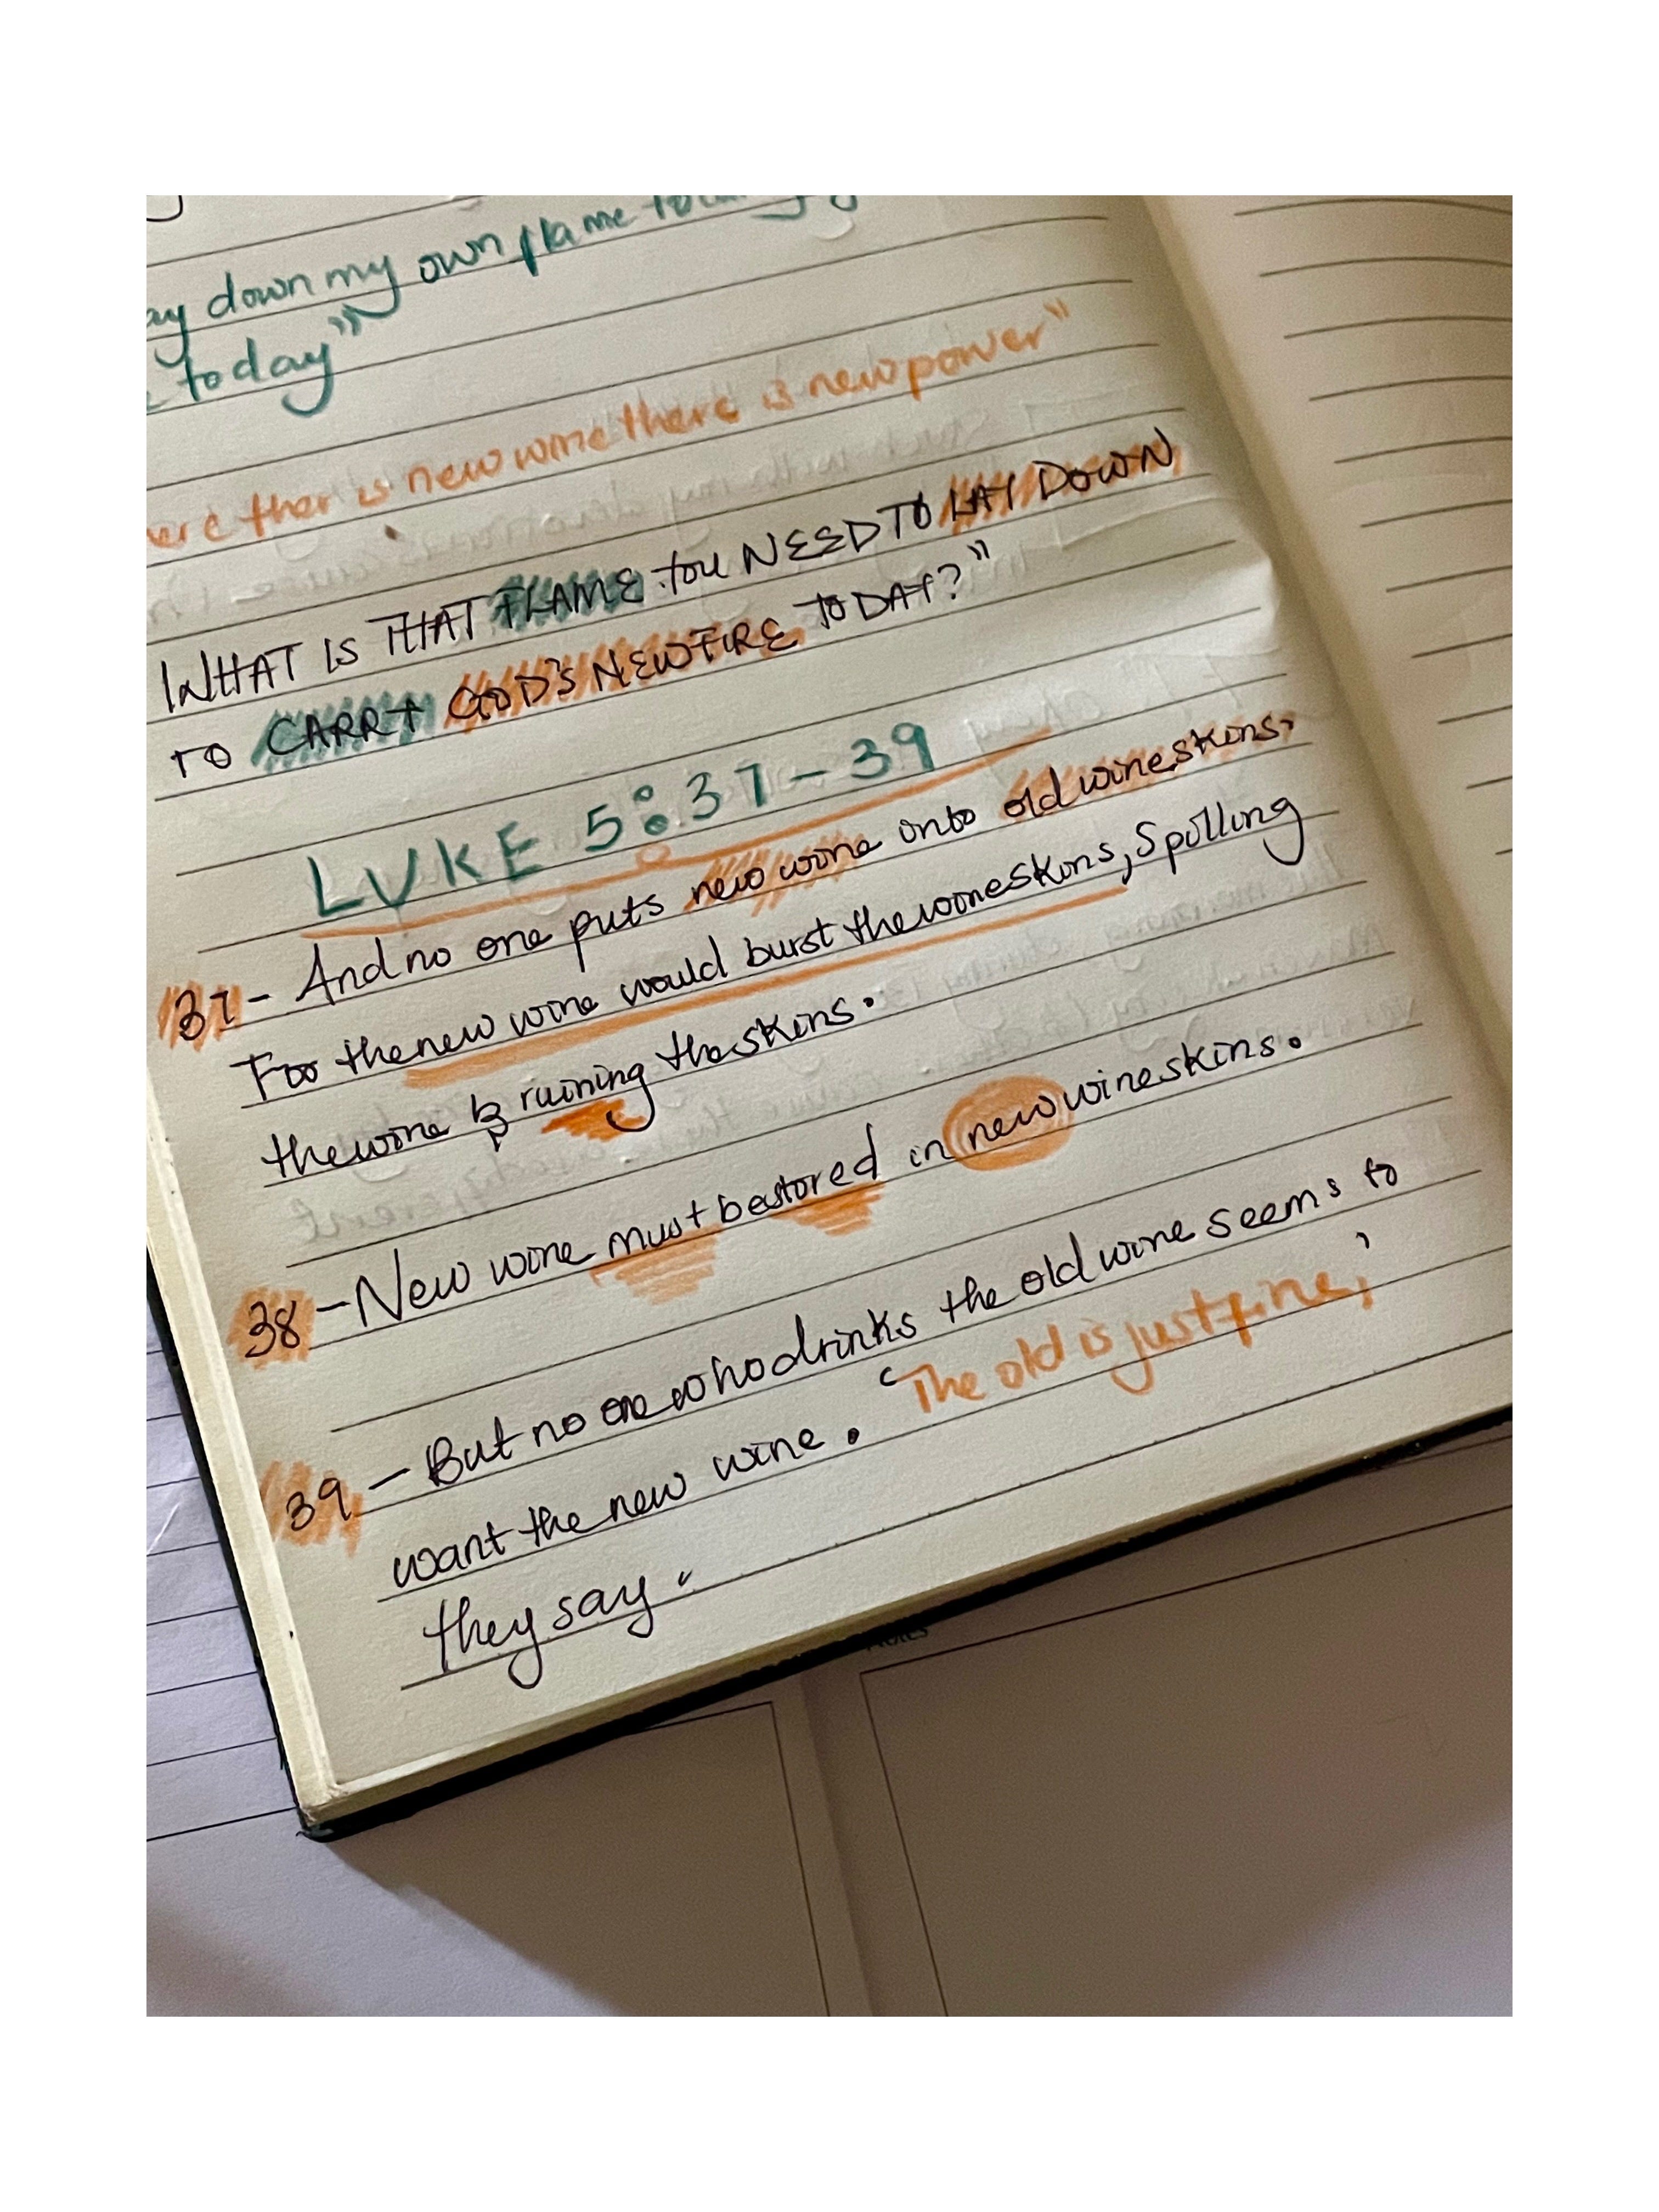 ay down my own flame
today"
ere ther is new wine there is new power"
WHAT IS THAT FLAME YOU NEED TO LAY DOWN
TO CARRY GOD'S NEW FIRE TODAY?"
LUKE 5:37-39
37- And no one puts new wine into old wineskins.
For the new wine would burst the wineskins, Spilling
the wine & ruining the skins.
38 - New wine must be stored in new wineskins.
39 - But no one who drinks the old wine seems to
want the new wine. 'The old is just fine,'
they say.
Notes